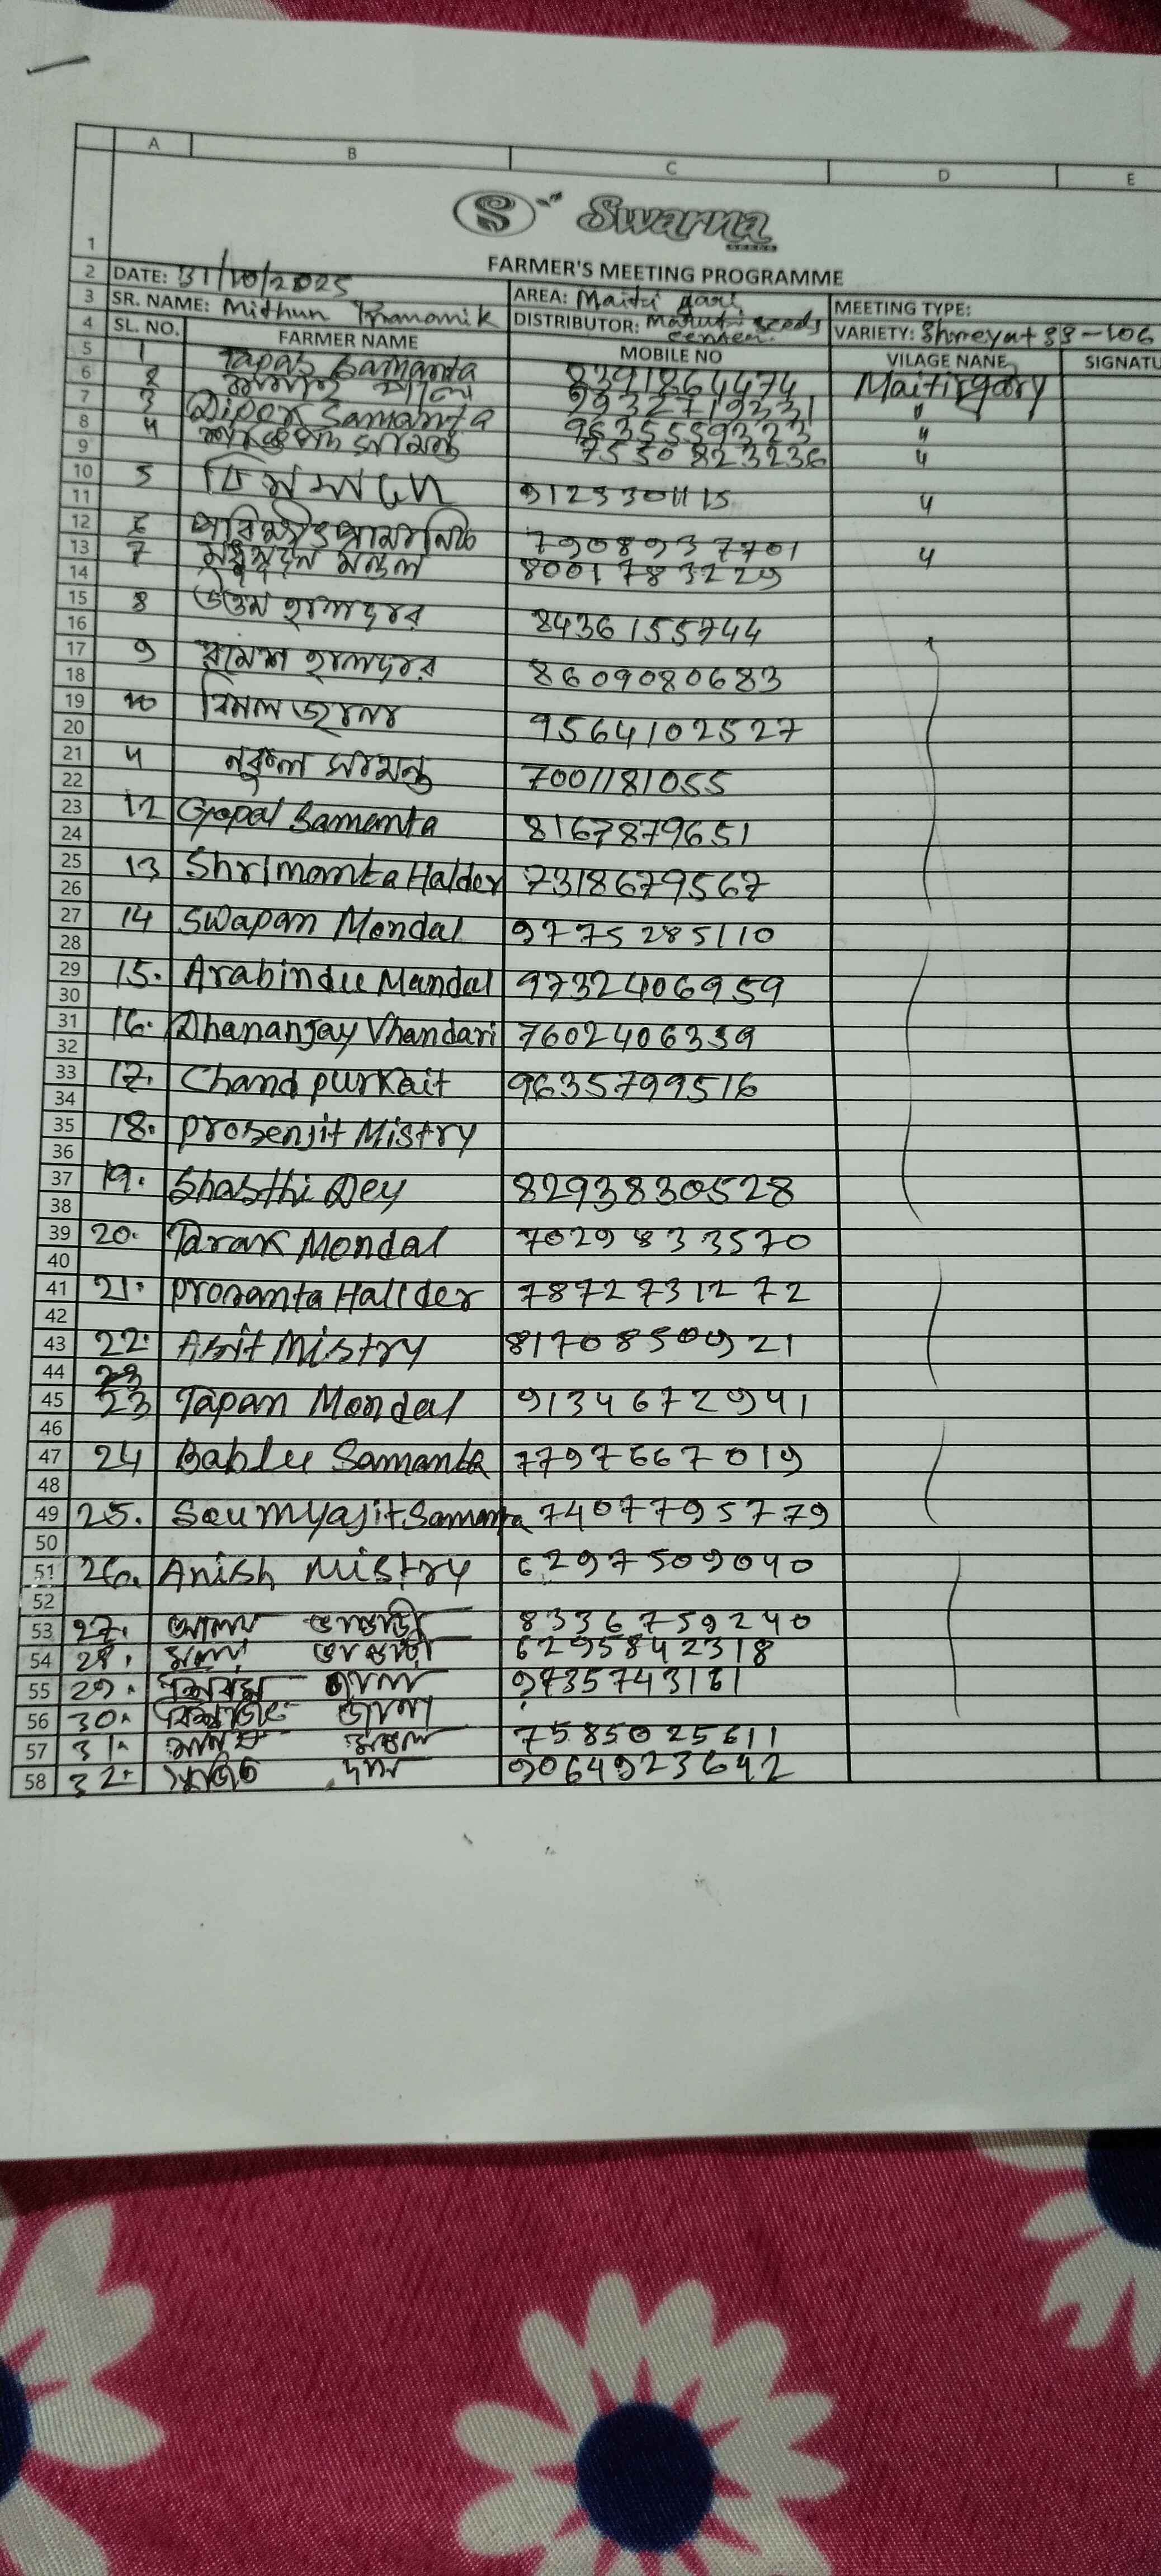 A B C D E
1 S Swarna SEEDS
FARMER'S MEETING PROGRAMME
2 DATE: 31/10/2025 AREA: Maiti gari MEETING TYPE:
3 SR. NAME: Mithun Pramanik DISTRIBUTOR: seeds center VARIETY: Shreyat SS-106
4 SL. NO. FARMER NAME MOBILE NO VILAGE NANE SIGNATU
5 1 Tapas Samanta 8391864474 Maitirgary
6 2 9932719331 "
7 3 Dipak Samanta 9635559323 "
8 4 সামন্ত 7550823236 "
9
10 5 9123301115 "
11
12 6 পরিক্ষীত প্রামানিক 7908937701 "
13 7 মধুসূদন মন্ডল 8001783229
14
15 8 উত্তম হালদার 8436155744
16
17 9 রমেশ হালদার 8609080683
18
19 10 বিমল জানা 9564102527
20
21 11 নকুল সামন্ত 7001181055
22
23 12 Gopal Samanta 8167879651
24
25 13 Shrimanta Halder 7318679567
26
27 14 Swapan Mondal 9775285110
28
29 15. Arabindu Mandal 9732406959
30
31 16. Dhananjay Vhandari 7602406339
32
33 17. Chand purkait 9635799516
34
35 18. Prosenjit Mistry
36
37 19. Shasthi Dey 8293830528
38
39 20. Tarak Mondal 7029833570
40
41 21. Prosanta Hallder 7872731272
42
43 22. Asit Mistry 8170850921
44 23
45 23 Tapan Mondal 9134672941
46
47 24 Bablu Samanta 7797667019
48
49 25. Soumyajit Samanta 7407795779
50
51 26. Anish Mistry 6297509040
52
53 27. 8336759240
54 28. 6295842318
55 29. 9735743161
56 30. বিশ্বজিৎ জানা
57 31. মন্ডল 7585025611
58 32. দাস 9064923642